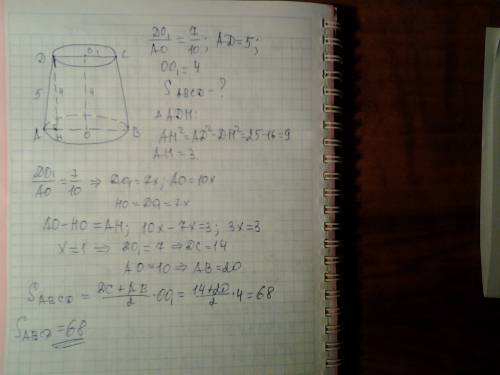 DO₁/AO = 7/10; AD=5;
OO₁ = 4
S_ABCD — ?
D O₁ C
5 4 4
A H O B
ΔADH:
AH²=AD²-DH²=25-16=9
AH=3
DO₁/AO = 7/10 ⇒ DO₁=7x, AO=10x
HO=DO₁=7x
AO-HO=AH; 10x-7x=3; 3x=3
x=1 ⇒ DO₁=7 ⇒ DC=14
AO=10 ⇒ AB=20
S_ABCD = (DC+AB)/2 · OO₁ = (14+20)/2 · 4 = 68
S_ABCD = 68